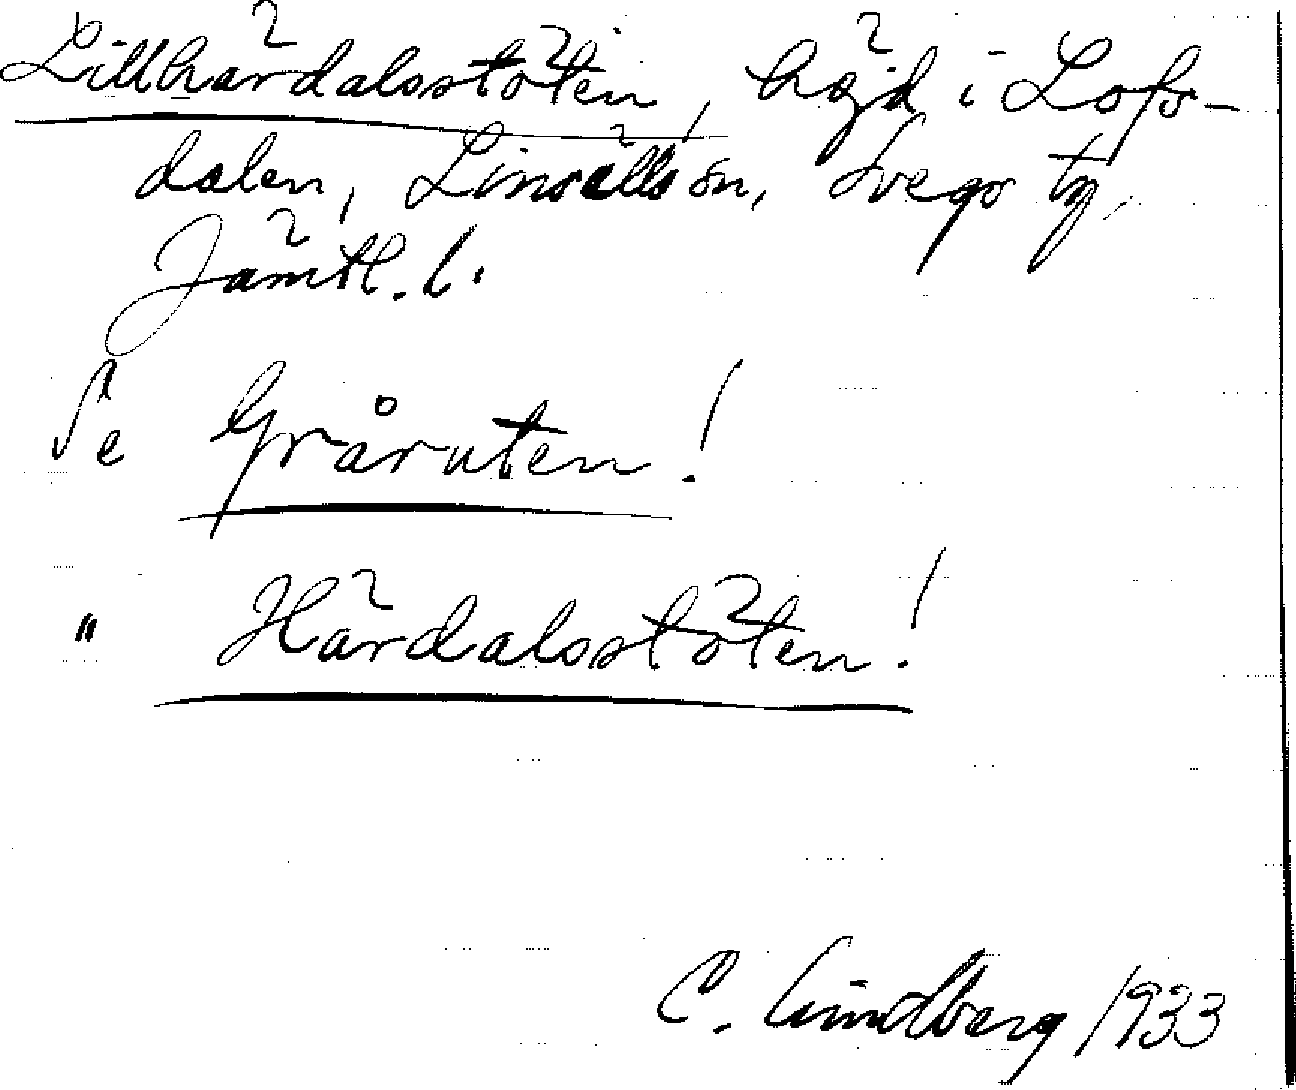 Lillhärdalsstöten, höjd i Lofs-
dalen, Linsälls sn, Svegs tg,
Jämtl. l.
Se Gråruten!
" Härdalsstöten!
C. Lindberg 1933